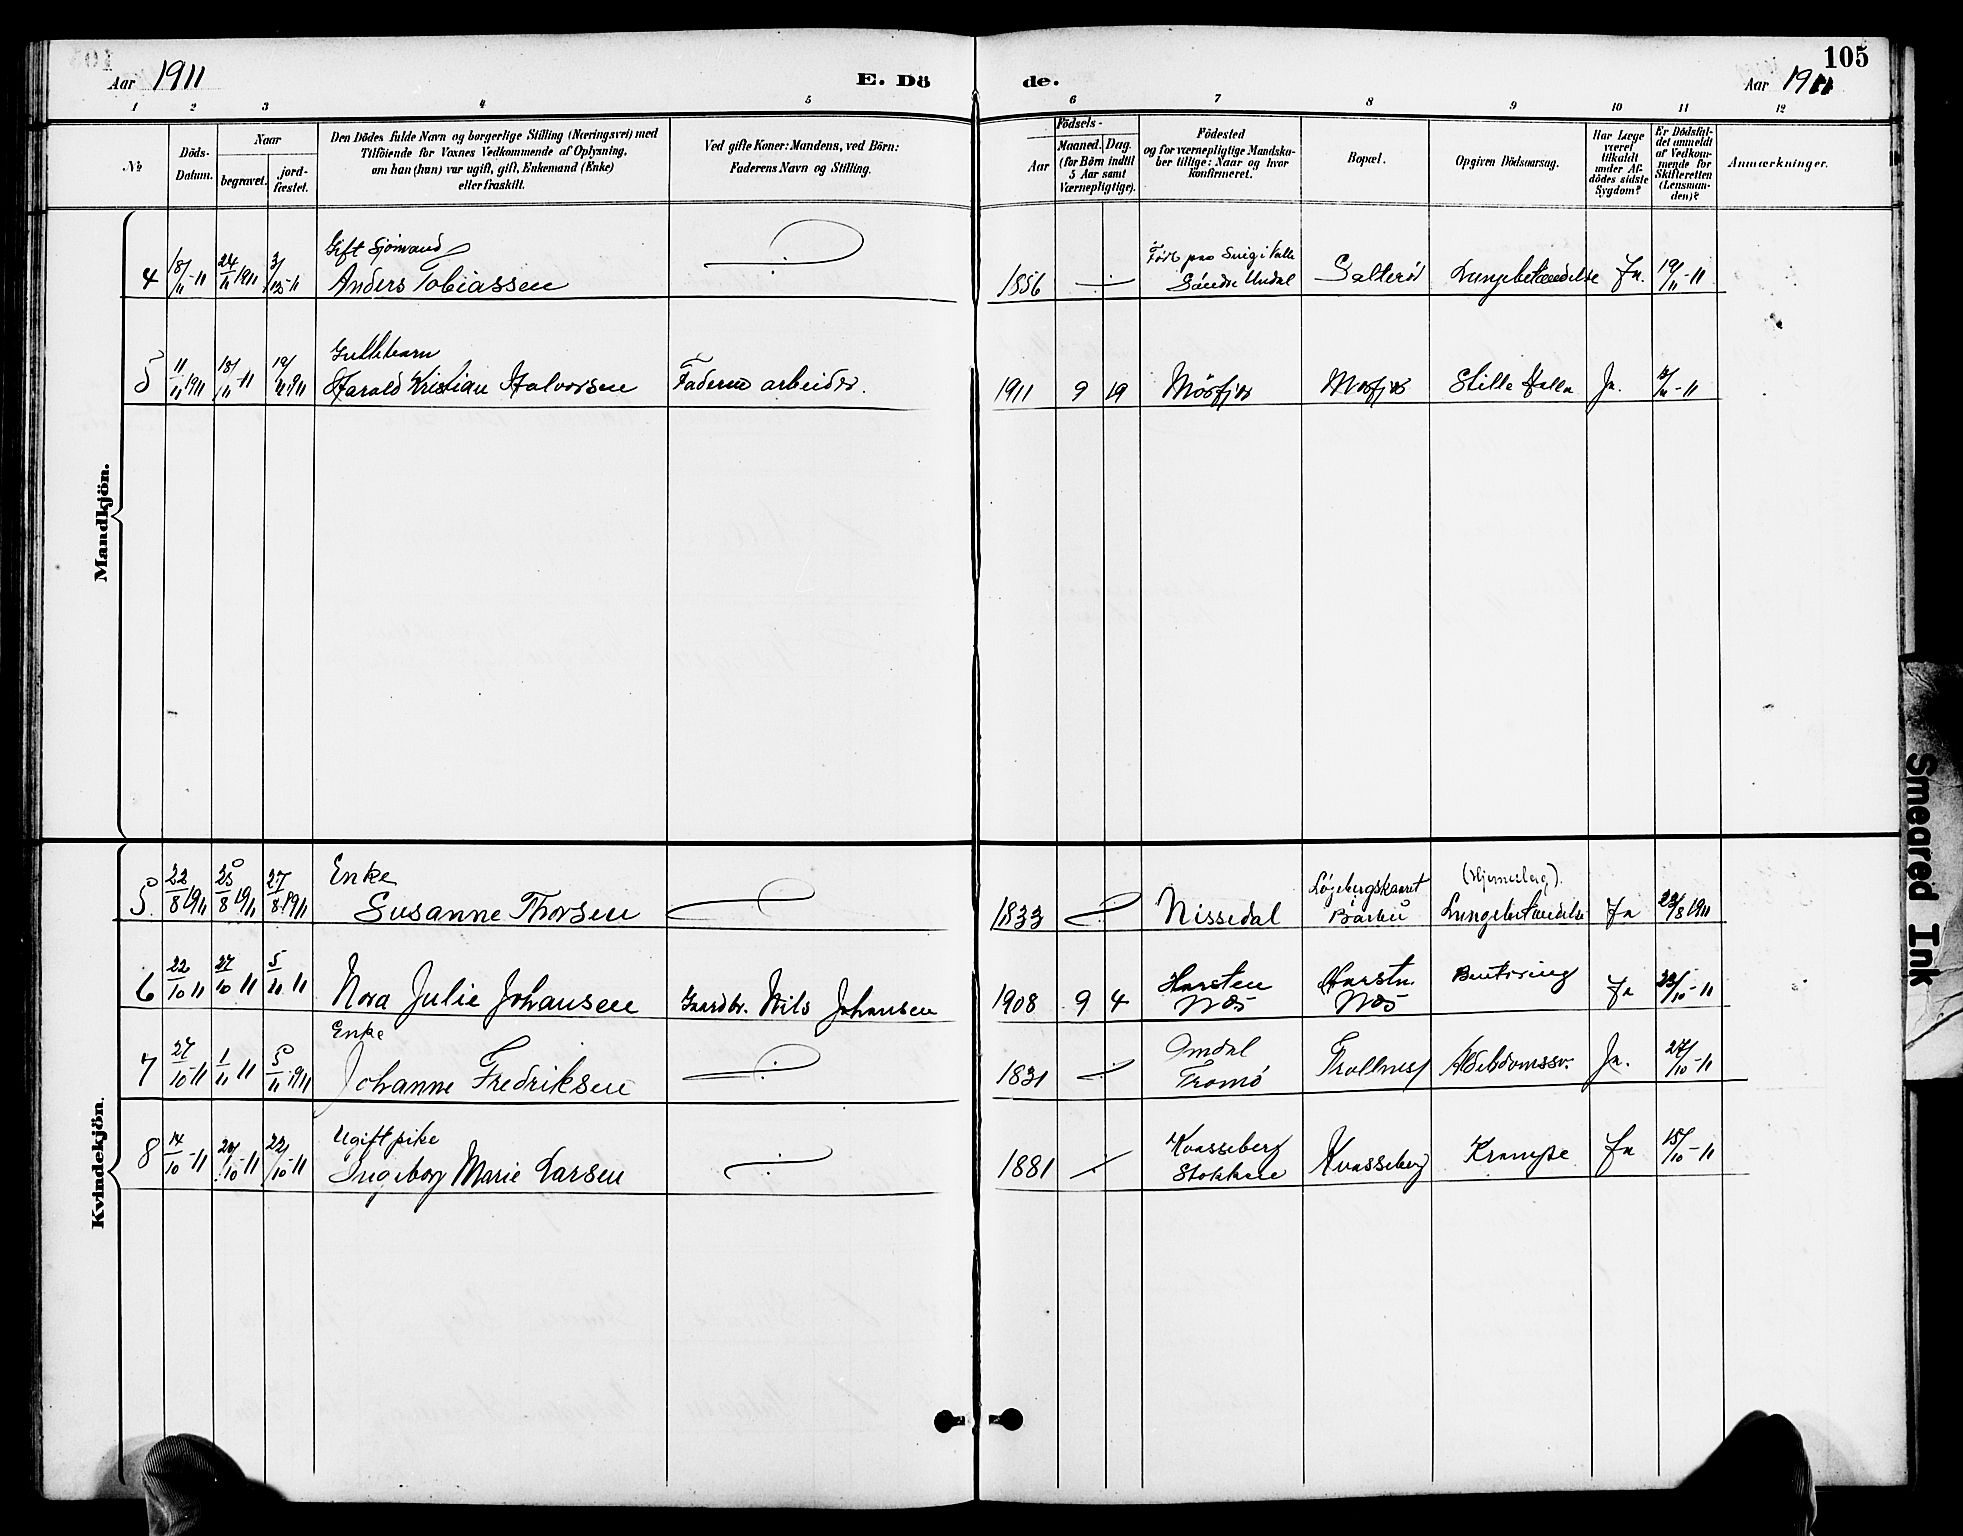 105
Aar 1911
E. Dö de.
Aar 1911
1 2 3 4 5 6 7 8 9 10 11 12
№
Döds-
Datum.
Naar
begravet.
jord-
fæstet.
Den Dödes fulde Navn og borgerlige Stilling (Næringsvei) med
Tilföiende for Voxnes Vedkommende af Oplysning,
om han (hun) var ugift, gift, Enkemand (Enke)
eller fraskilt.
Ved gifte Koner: Mandens, ved Börn:
Faderens Navn og Stilling.
Födsels-
Aar
Maaned. Dag.
(for Börn indtil
5 Aar samt
Værnepligtige).
Födested
og for værnepligtige Mandska-
ber tillige: Naar og hvor
konfirmeret.
Bopæl.
Opgiven Dödsaarsag.
Har Læge
været
tilkaldt
under Af-
dödes sidste
Sygdom?
Er Dödsfal-
det anmeldt
af Vedkom-
mende for
Skifteretten
(Lensman-
den)?
Anmærkninger.
Mandkjön.
Gift Sjömand
4 18/11-11 24/11 1911 3/12-11 Anders Tobiassen 1856 Söndre Undal Salteröd Lungebetændelse Ja. 19/11-11
5 11/11 1911 18/11-11 19/11 1911 Harald Kristian Halvorsen Faderen arbeider. 1911 9 19 Mörfjær Morfjær Ja.
Kvindekjön.
Enke
5. 22/8 1911 25/8 1911 27/8 1911 Susanne Thorsen 1833 Nissedal Barbu Lungebetændelse Ja 23/8 1911
6 22/10 11 27/10 11 5/11 11 Nora Julie Johansen Gaardbr. Nils Johansen 1908 9 4 Harsten Næs Harstn. Næs Ja 23/10-11
Enke
7 27/10-11 1/11 11 5/11 1911 Johanne Fredriksen 1831 Omdal Tromö Trollnes Alderdomssv. Ja. 27/10-11
Ugift pike
8 14/10-11 20/10-11 22/10-11 Ingeborg Marie Larsen 1881 Kvasseberg Stokken Kvasseberg Krampe Ja 15/10-11
Smeared Ink